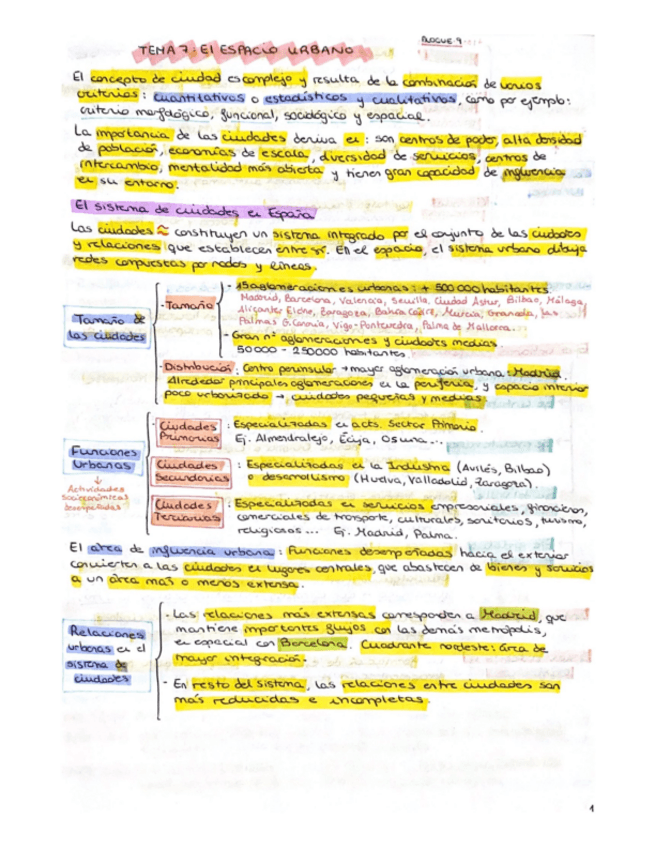 BLOQUE 9
TEMA 7: El ESPACIO URBANO
El concepto de ciudad es complejo y resulta de la combinación de varios
criterios: cuantitativos o estadísticos y cualitativos, como por ejemplo:
criterio morfológico, funcional, sociológico y espacial.
La importancia de las ciudades deriva en: son centros de poder, alta densidad
de población, economías de escala, diversidad de servicios, centros de
intercambio, mentalidad más abierta y tienen gran capacidad de influencia
en su entorno.
El sistema de ciudades en España
Las ciudades constituyen un sistema integrado por el conjunto de las ciudades
y relaciones que establecen entre sí. En el espacio, el sistema urbano dibuja
redes compuestas por nodos y líneas.
Tamaño de
las ciudades
- Tamaño
- 15 aglomeraciones urbanas: + 500 000 habitantes.
Madrid, Barcelona, Valencia, Sevilla, Ciudad Astur, Bilbao, Málaga,
Alicante Elche, Zaragoza, Bahía Cádiz, Murcia, Granada, Las
Palmas G. Canaria, Vigo-Pontevedra, Palma de Mallorca.
- Gran nº aglomeraciones y ciudades medias.
50 000 - 250000 habitantes.
- Distribución: Centro peninsular → mayor aglomeración urbana: Madrid.
Alrededor principales aglomeraciones en la periferia, y espacio interior
poco urbanizado → ciudades pequeñas y medias.
Funciones
Urbanas
↓
Actividades
socioeconómicas
desempeñadas
Ciudades
Primarias
: Especializadas en acts. Sector Primario.
Ej. Almendralejo, Écija, Osuna...
Ciudades
Secundarias
: Especializadas en la Industria (Avilés, Bilbao)
o desarrollismo (Huelva, Valladolid, Zaragoza).
Ciudades
Terciarias
: Especializadas en servicios empresariales, financieros,
comerciales de transporte, culturales, sanitarios, turismo,
religiosos... Ej. Madrid, Palma.
El área de influencia urbana: Funciones desempeñadas hacia el exterior
convierten a las ciudades en lugares centrales, que abastecen de bienes y servicios
a un área más o menos extensa.
Relaciones
urbanas en el
sistema de
ciudades
- Las relaciones más extensas corresponden a Madrid, que
mantiene importantes flujos con las demás metrópolis,
en espacial con Barcelona. Cuadrante nordeste: área de
mayor integración.
- En resto del sistema, las relaciones entre ciudades son
más reducidas e incompletas.
1